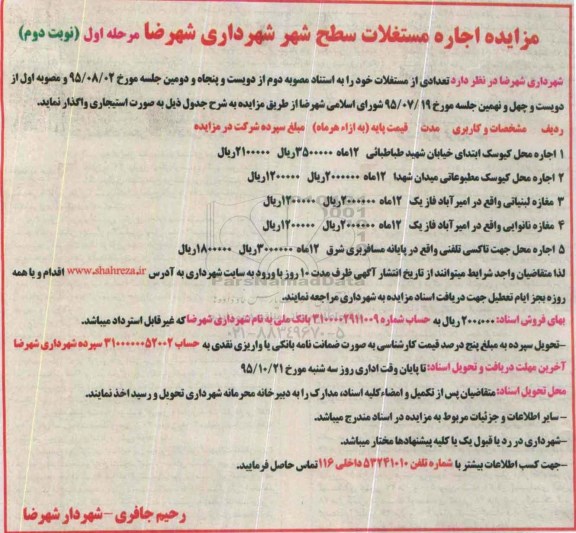 مزایده اجاره مستغلات سطح شهر شهرداری شهرضا مرحله اول (نوبت دوم)
شهرداری شهرضا در نظر دارد تعدادی از مستغلات خود را به استناد مصوبه دوم از دویست و پنجاه و دومین جلسه مورخ ۹۵/۰۸/۰۲ و مصوبه اول از
دویست و چهل و نهمین جلسه مورخ ۹۵/۰۷/۱۹ شورای اسلامی شهرضا از طریق مزایده به شرح جدول ذیل به صورت استیجاری واگذار نماید.
ردیف مشخصات و کاربری مدت قیمت پایه (به ازاء هرماه) مبلغ سپرده شرکت در مزایده
۱ اجاره محل کیوسک ابتدای خیابان شهید طباطبائی ۱۲ماه ۳۵۰۰۰۰۰ریال ۲۱۰۰۰۰۰ریال
۲ اجاره محل کیوسک مطبوعاتی میدان شهدا ۱۲ماه ۲۰۰۰۰۰۰ریال ۱۲۰۰۰۰۰ریال
۳ مغازه لبنیاتی واقع در امیرآباد فاز یک ۱۲ماه ۲۰۰۰۰۰۰ریال ۱۲۰۰۰۰۰ریال
۴ مغازه نانوایی واقع در امیرآباد فاز یک ۱۲ماه ۲۰۰۰۰۰۰ریال ۱۲۰۰۰۰۰ریال
۵ اجاره محل جهت تاکسی تلفنی واقع در پایانه مسافربری شرق ۱۲ماه ۳۰۰۰۰۰۰ریال ۱۸۰۰۰۰۰ریال
لذا متقاضیان واجد شرایط میتوانند از تاریخ انتشار آگهی ظرف مدت ۱۰ روز با ورود به سایت شهرداری به آدرس www.shahreza.ir اقدام و یا همه
روزه بجز ایام تعطیل جهت دریافت اسناد مزایده به شهرداری مراجعه نمایند.
ParsNamadData
بهای فروش اسناد: ۲۰۰،۰۰۰ ریال به حساب شماره ۳۱۰۰۰۰۲۹۱۱۰۰۹ بانک ملی به نام شهرداری شهرضا که غیر قابل استرداد میباشد.
۰۲۱-۸۸۳۴۹۶۷۰-۵
-تحویل سپرده به مبلغ پنج درصد قیمت کارشناسی به صورت ضمانت نامه بانکی یا واریزی نقدی به حساب ۳۱۰۰۰۰۰۰۵۲۰۰۲ سپرده شهرداری شهرضا
آخرین مهلت دریافت و تحویل اسناد: تا پایان وقت اداری روز سه شنبه مورخ ۹۵/۱۰/۲۱
محل تحویل اسناد: متقاضیان پس از تکمیل و امضاء کلیه اسناد، مدارک را به دبیرخانه محرمانه شهرداری تحویل و رسید اخذ نمایند.
- سایر اطلاعات و جزئیات مربوط به مزایده در اسناد مندرج میباشد.
-شهرداری در رد یا قبول یک یا کلیه پیشنهادها مختار میباشد.
-جهت کسب اطلاعات بیشتر با شماره تلفن ۵۳۲۴۱۰۱۰ داخلی ۱۱۶ تماس حاصل فرمایید.
رحیم جافری -شهردار شهرضا